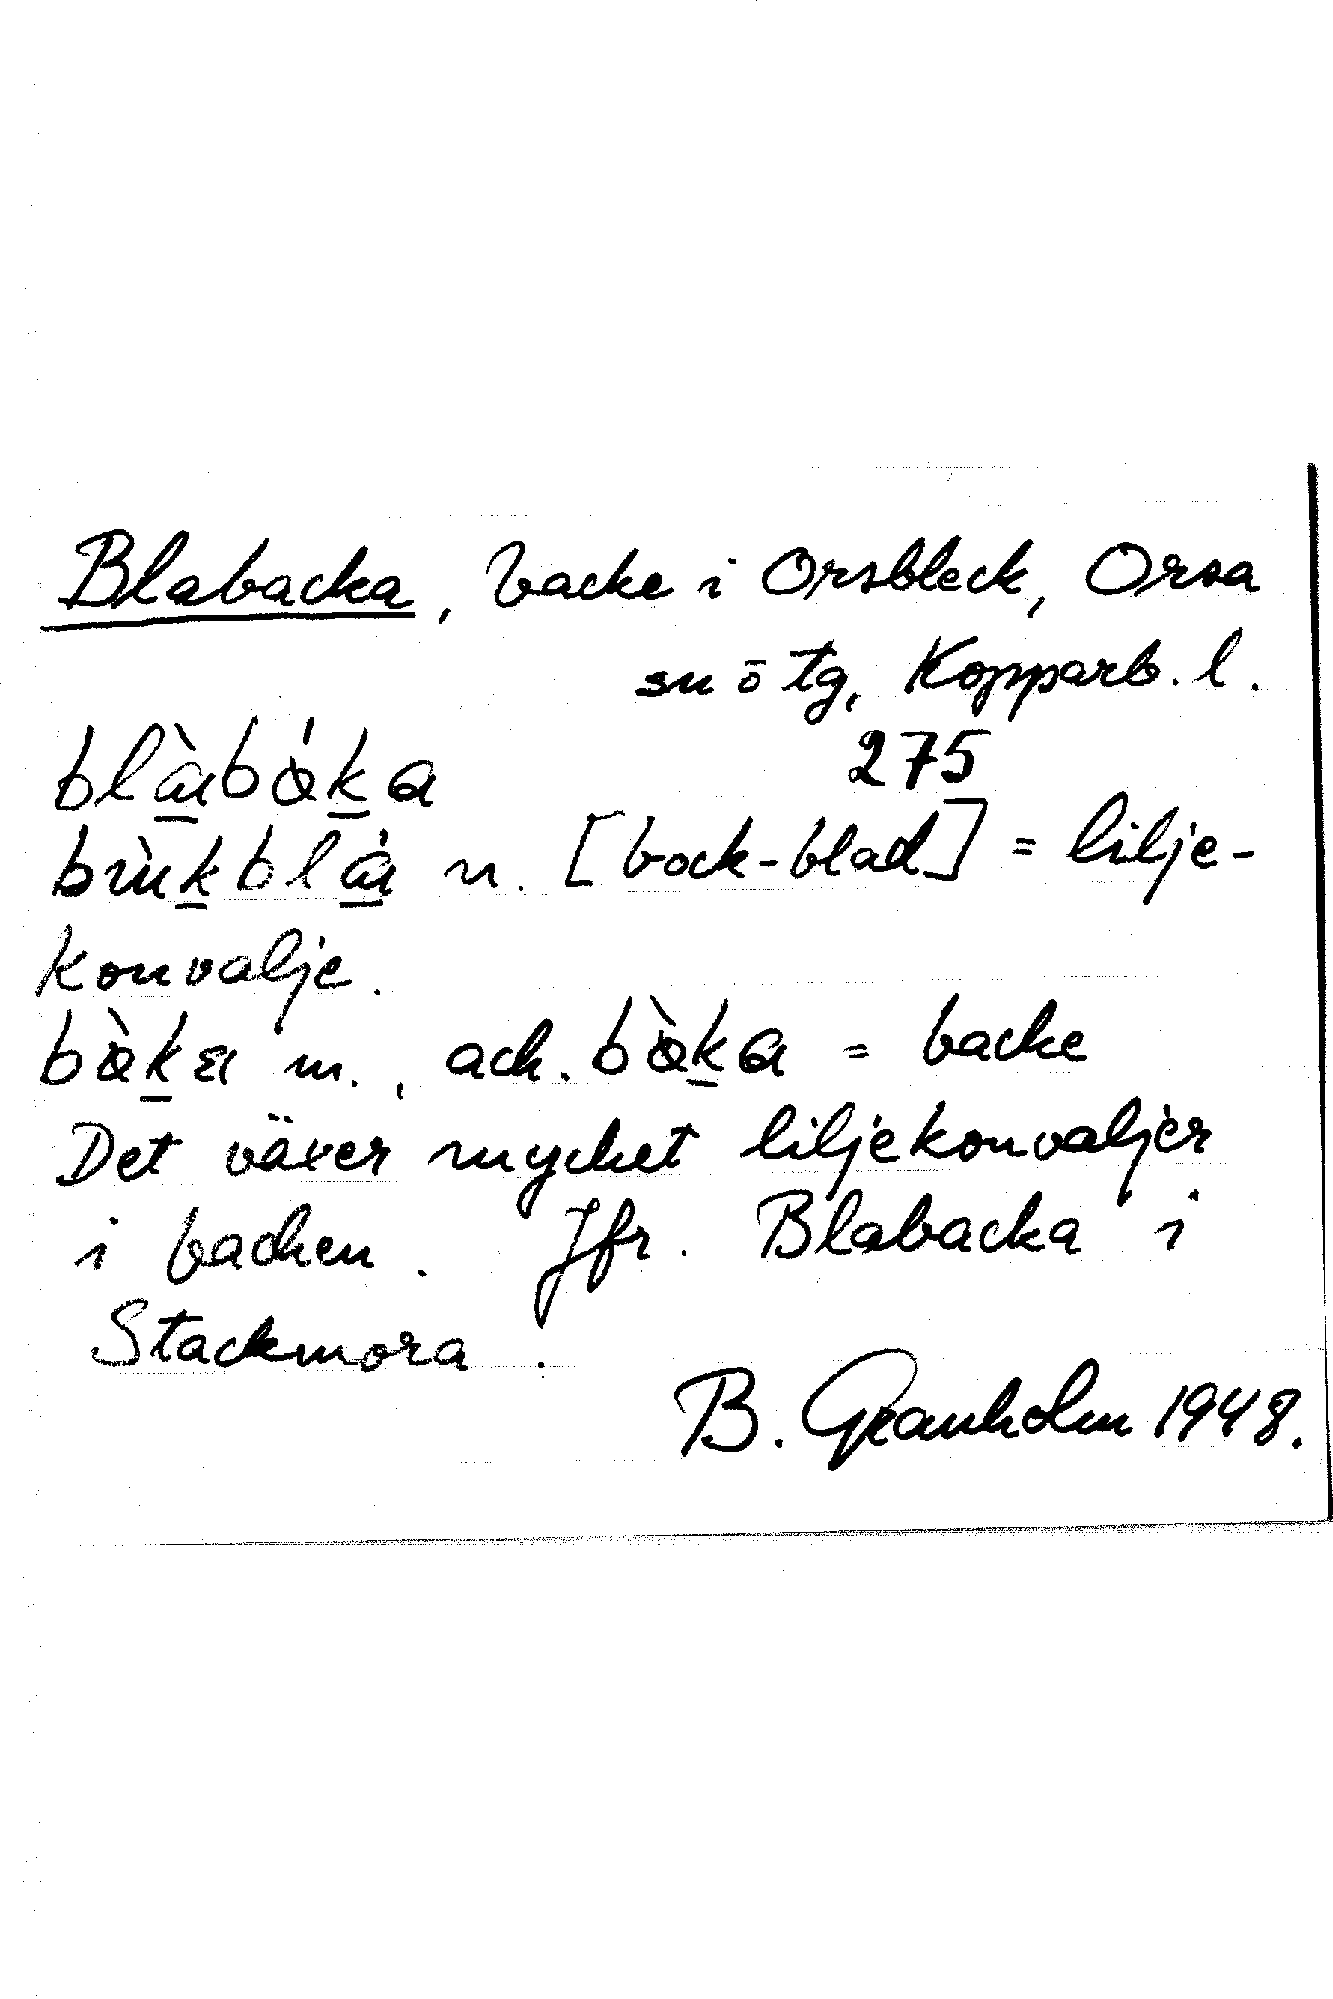 Blabacka, backe i Orsbleck, Orsa
sn o tg, Kopparb. l.
275
n. [bock-blad] = lilje-
konvalje.
m., ack. = backe
Det växer mycket liljekonvaljer
i backen. Jfr. Blabacka i
Stackmora.
B. Granholm 1948.